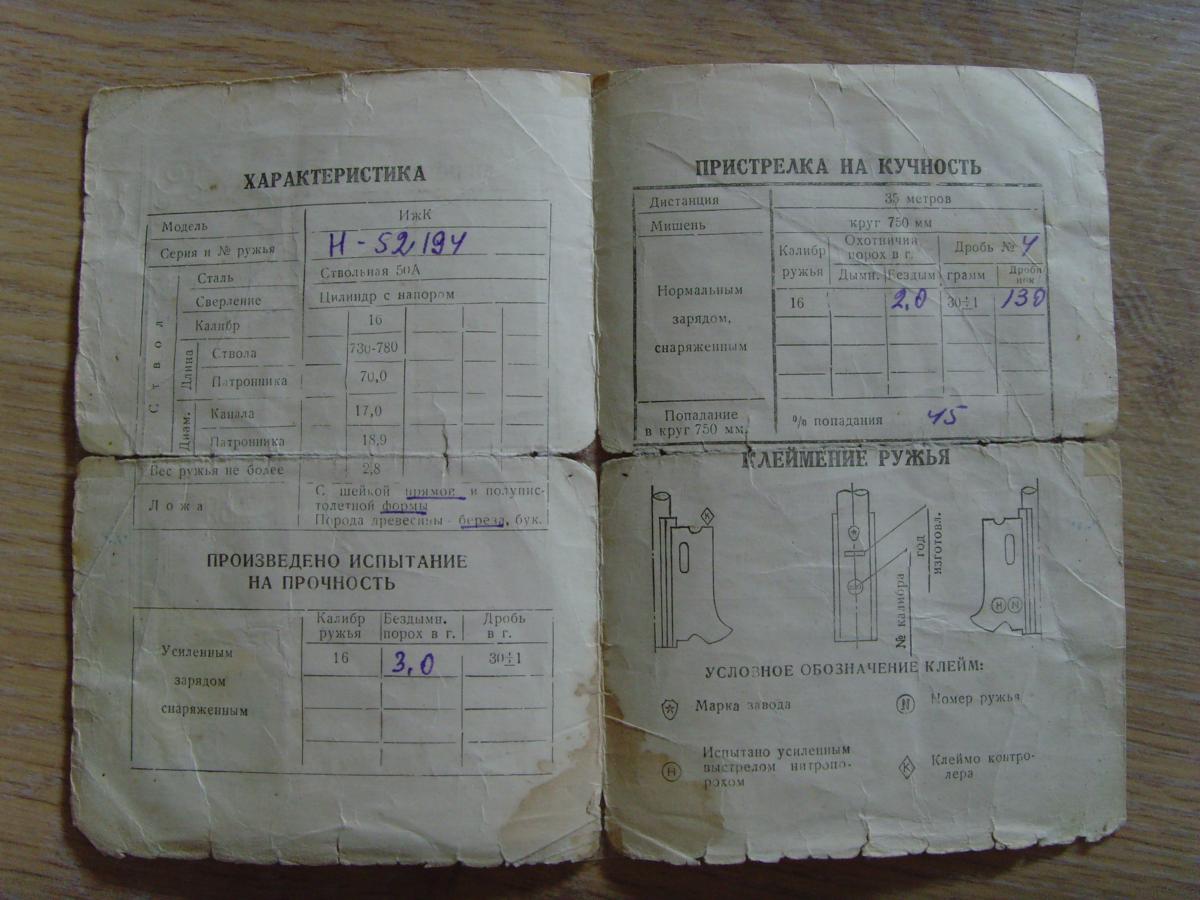 ХАРАКТЕРИСТИКА
Модель ИжК
Серия и № ружья Н - 52194
Ствол
Сталь Ствольная 50А
Сверление Цилиндр с напором
Калибр 16
Длина
Ствола 730-780
Патронника 70,0
Диам.
Канала 17,0
Патронника 18,9
Вес ружья не более 2,8
Ложа
С шейкой прямой и полупис-
толетной формы
Порода древесины - береза, бук.
ПРОИЗВЕДЕНО ИСПЫТАНИЕ
НА ПРОЧНОСТЬ
Калибр ружья
Бездымн. порох в г.
Дробь в г.
Усиленным
зарядом
снаряженным
16 3,0 30±1
ПРИСТРЕЛКА НА КУЧНОСТЬ
Дистанция 35 метров
Мишень круг 750 мм
Калибр ружья
Охотничий порох в г.
Дробь № 4
Дымн. Бездым грамм Дроби
Нормальным
зарядом,
снаряженным
16 2,0 30±1 130
Попадание
в круг 750 мм.
% попадания 45
КЛЕЙМЕНИЕ РУЖЬЯ
К
год
изготовл.
№ калибра
Н N
УСЛОВНОЕ ОБОЗНАЧЕНИЕ КЛЕЙМ:
Марка завода
N Номер ружья
Н Испытано усиленным
выстрелом нитропо-
рохом
К Клеймо контро-
лера